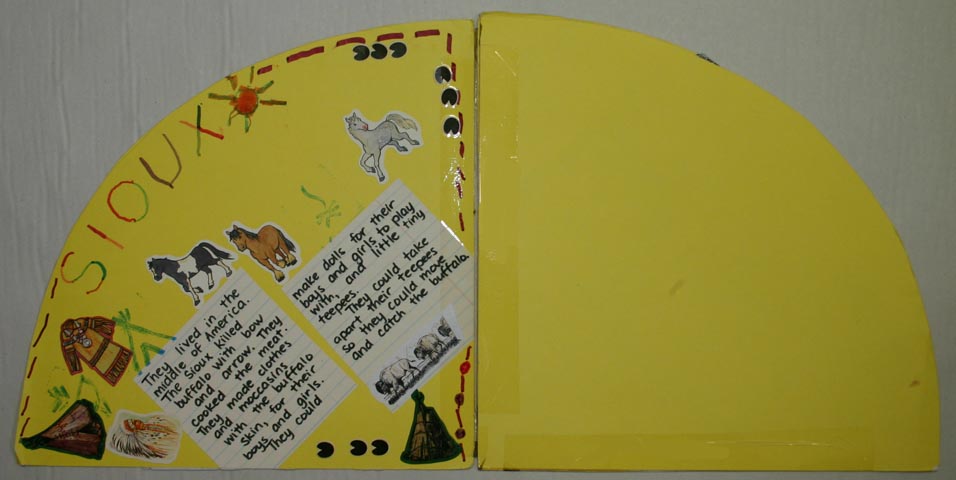 SIOUX
They lived in the
middle of America.
The Sioux Killed
buffalo with bow
and arrow. They
cooked the meat.
They made clothes
and moccasins
with the buffalo
skin, for their
boys and girls.
They could
make dolls for their
boys and girls to play
with, and little tiny
teepees.
They could take
apart their teepees
so they could move
and catch the buffalo.